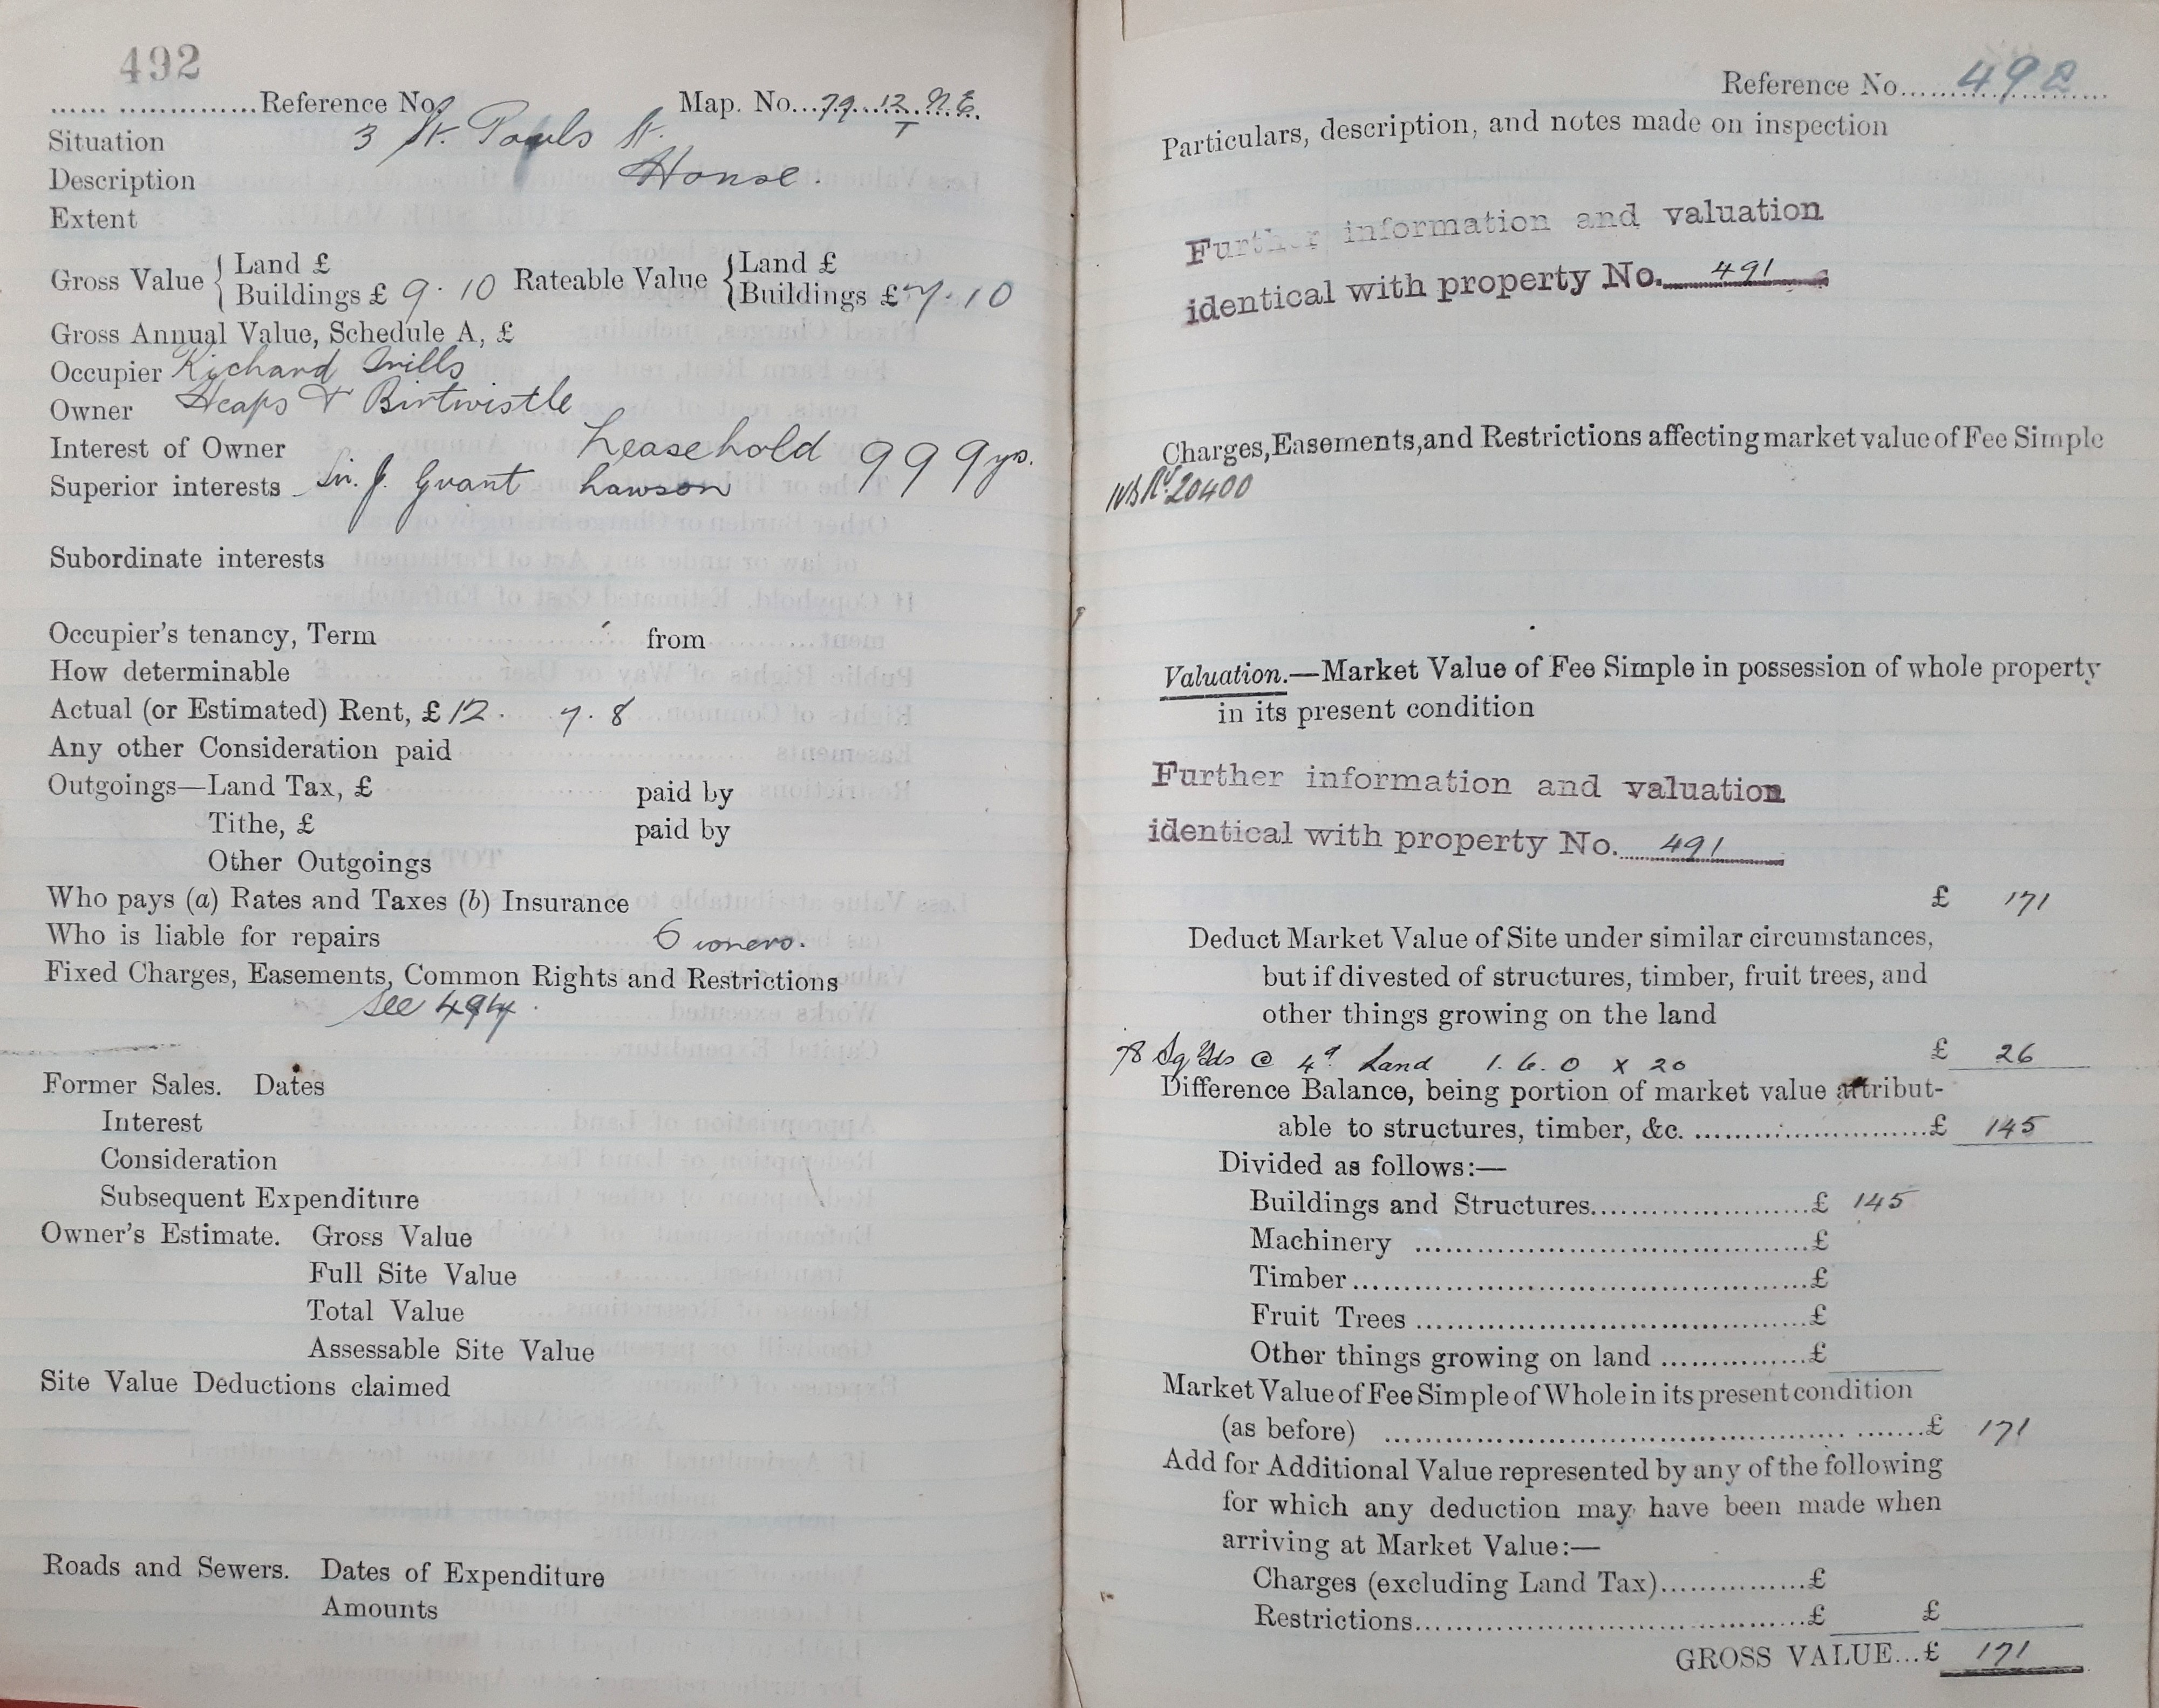 492
.................... Reference No. Map. No... 79. 12. N.E.
T
Situation 3 St. Pauls St.
Description House.
Extent
Gross Value { Land £ Rateable Value { Land £
Buildings £ 9.10 Buildings £ 7.10
Gross Annual Value, Schedule A, £
Occupier Richard Mills
Owner Heaps & Birtwistle
Interest of Owner Leasehold 999 yrs.
Superior interests Sir. J. Grant Lawson
Subordinate interests
Occupier's tenancy, Term from
How determinable
Actual (or Estimated) Rent, £ 12. 7. 8
Any other Consideration paid
Outgoings—Land Tax, £ paid by
Tithe, £ paid by
Other Outgoings
Who pays (a) Rates and Taxes (b) Insurance
Who is liable for repairs Owners.
Fixed Charges, Easements, Common Rights and Restrictions
See 494.
Former Sales. Dates
Interest
Consideration
Subsequent Expenditure
Owner's Estimate. Gross Value
Full Site Value
Total Value
Assessable Site Value
Site Value Deductions claimed
Roads and Sewers. Dates of Expenditure
Amounts
Reference No. 492
Particulars, description, and notes made on inspection
Further information and valuation
identical with property No. 491
Charges, Easements, and Restrictions affecting market value of Fee Simple
20400
Valuation.—Market Value of Fee Simple in possession of whole property
in its present condition
Further information and valuation
identical with property No. 491
£ 171
Deduct Market Value of Site under similar circumstances,
but if divested of structures, timber, fruit trees, and
other things growing on the land
78 Sq Yds @ 4d Land 1. 6. 0 x 20 £ 26
Difference Balance, being portion of market value attribut-
able to structures, timber, &c. ..............................£ 145
Divided as follows:—
Buildings and Structures......................£ 145
Machinery ......................................£
Timber.............................................£
Fruit Trees ......................................£
Other things growing on land ................£
Market Value of Fee Simple of Whole in its present condition
(as before) ......................................................£ 171
Add for Additional Value represented by any of the following
for which any deduction may have been made when
arriving at Market Value:—
Charges (excluding Land Tax)................£
Restrictions......................................£ £
GROSS VALUE...£ 171